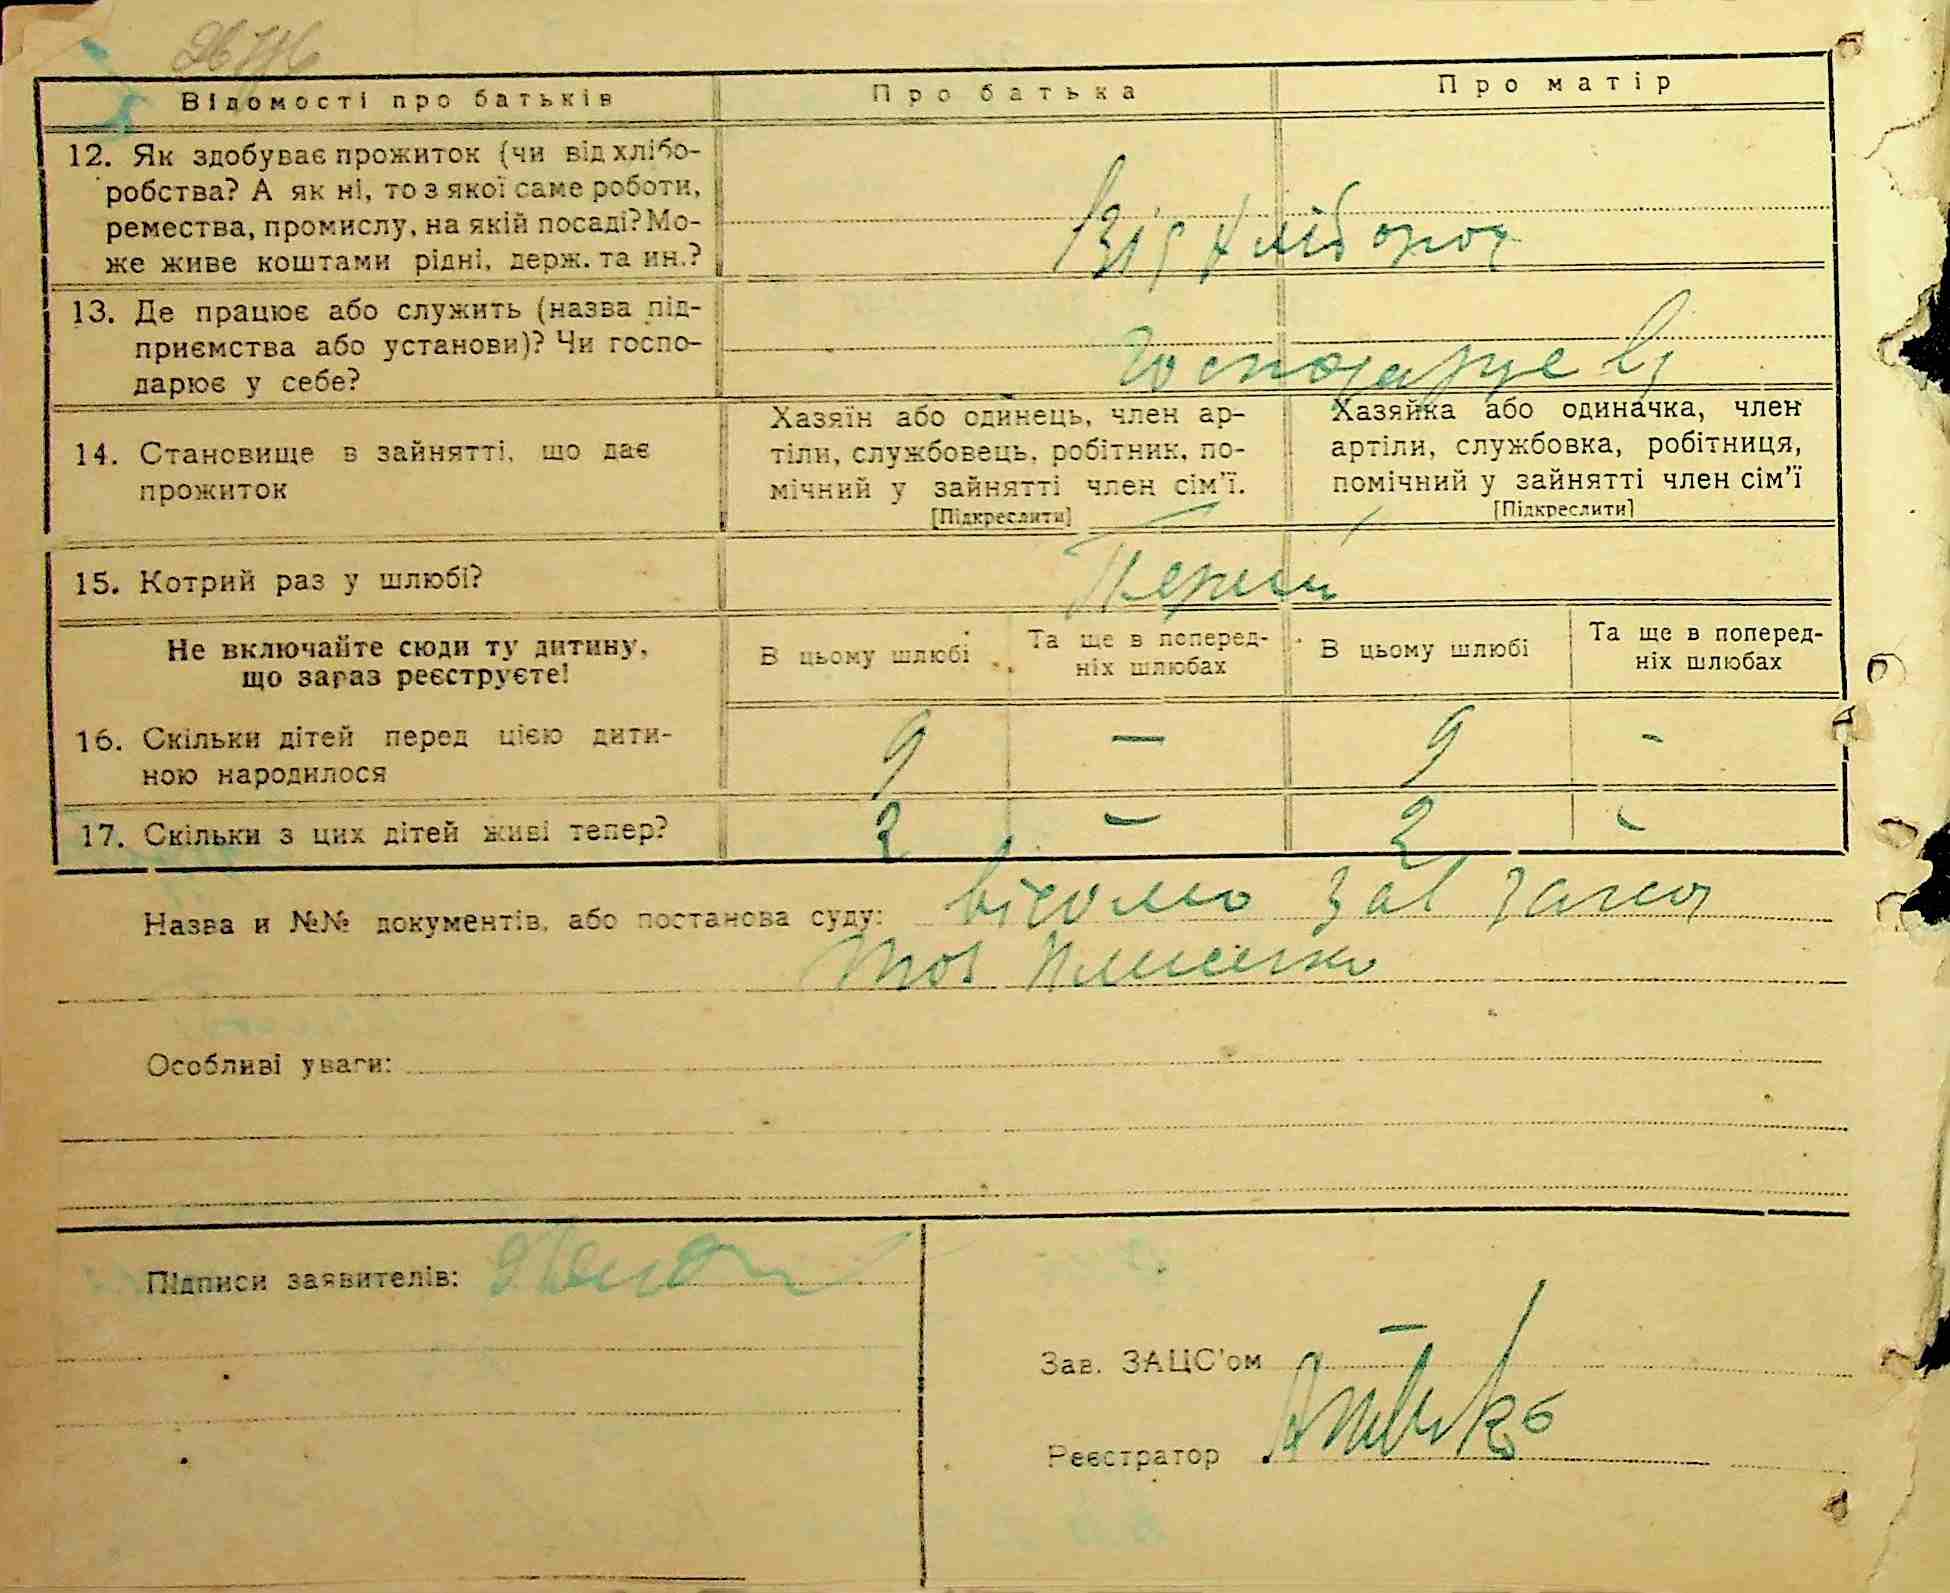 Відомості про батьків
Про батька
Про матір
12. Як здобуває прожиток (чи від хлібо-
робства? А як ні, то з якої саме роботи,
ремества, промислу, на якій посаді? Мо-
же живе коштами рідні, держ. та ин.?
Від хлібороб
13. Де працює або служить (назва під-
приємства або установи)? Чи госпо-
дарює у себе?
Господарує
14. Становище в зайнятті, що дає
прожиток
Хазяїн або одинець, член ар-
тіли, службовець, робітник, по-
мічний у зайнятті член сім'ї.
[Підкреслити]
Хазяйка або одиначка, член
артіли, службовка, робітниця,
помічний у зайнятті член сім'ї
[Підкреслити]
15. Котрий раз у шлюбі?
Перший
Не включайте сюди ту дитину,
що зараз реєструєте!
В цьому шлюбі
Та ще в поперед-
ніх шлюбах
В цьому шлюбі
Та ще в поперед-
ніх шлюбах
16. Скільки дітей перед цією дити-
ною народилося
9 — 9 -
17. Скільки з цих дітей живі тепер?
2 — 2 -
Назва и №№ документів, або постанова суду: відомо зав загса
тов
Особливі уваги:
Підписи заявителів:
Зав. ЗАЦС'ом
Реєстратор